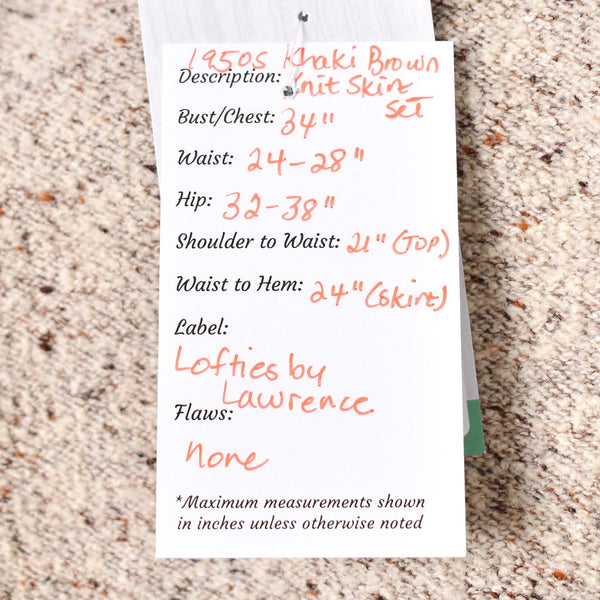 1950s Khaki Brown
Description: Knit Skirt
Set
Bust/Chest: 34"
Waist: 24-28"
Hip: 32-38"
Shoulder to Waist: 21" (Top)
Waist to Hem: 24" (skirt)
Label:
Lofties by
Lawrence
Flaws:
None
*Maximum measurements shown
in inches unless otherwise noted